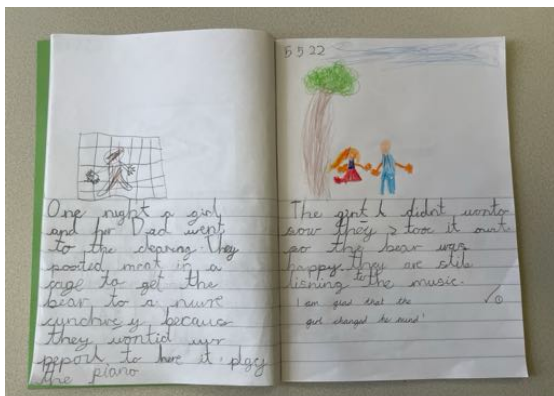 One night a girl
and her Dad went
to the clearing. They
pooted meat in a
cage to get the
bear to a nuwe
becaus
they wontid
to it play
the piano
5 5 22
The girl didnt wonto
sow they took it owt
so the bear was
happy. they are stil
lisning to the music.
I am glad that the
girl changed her mind!